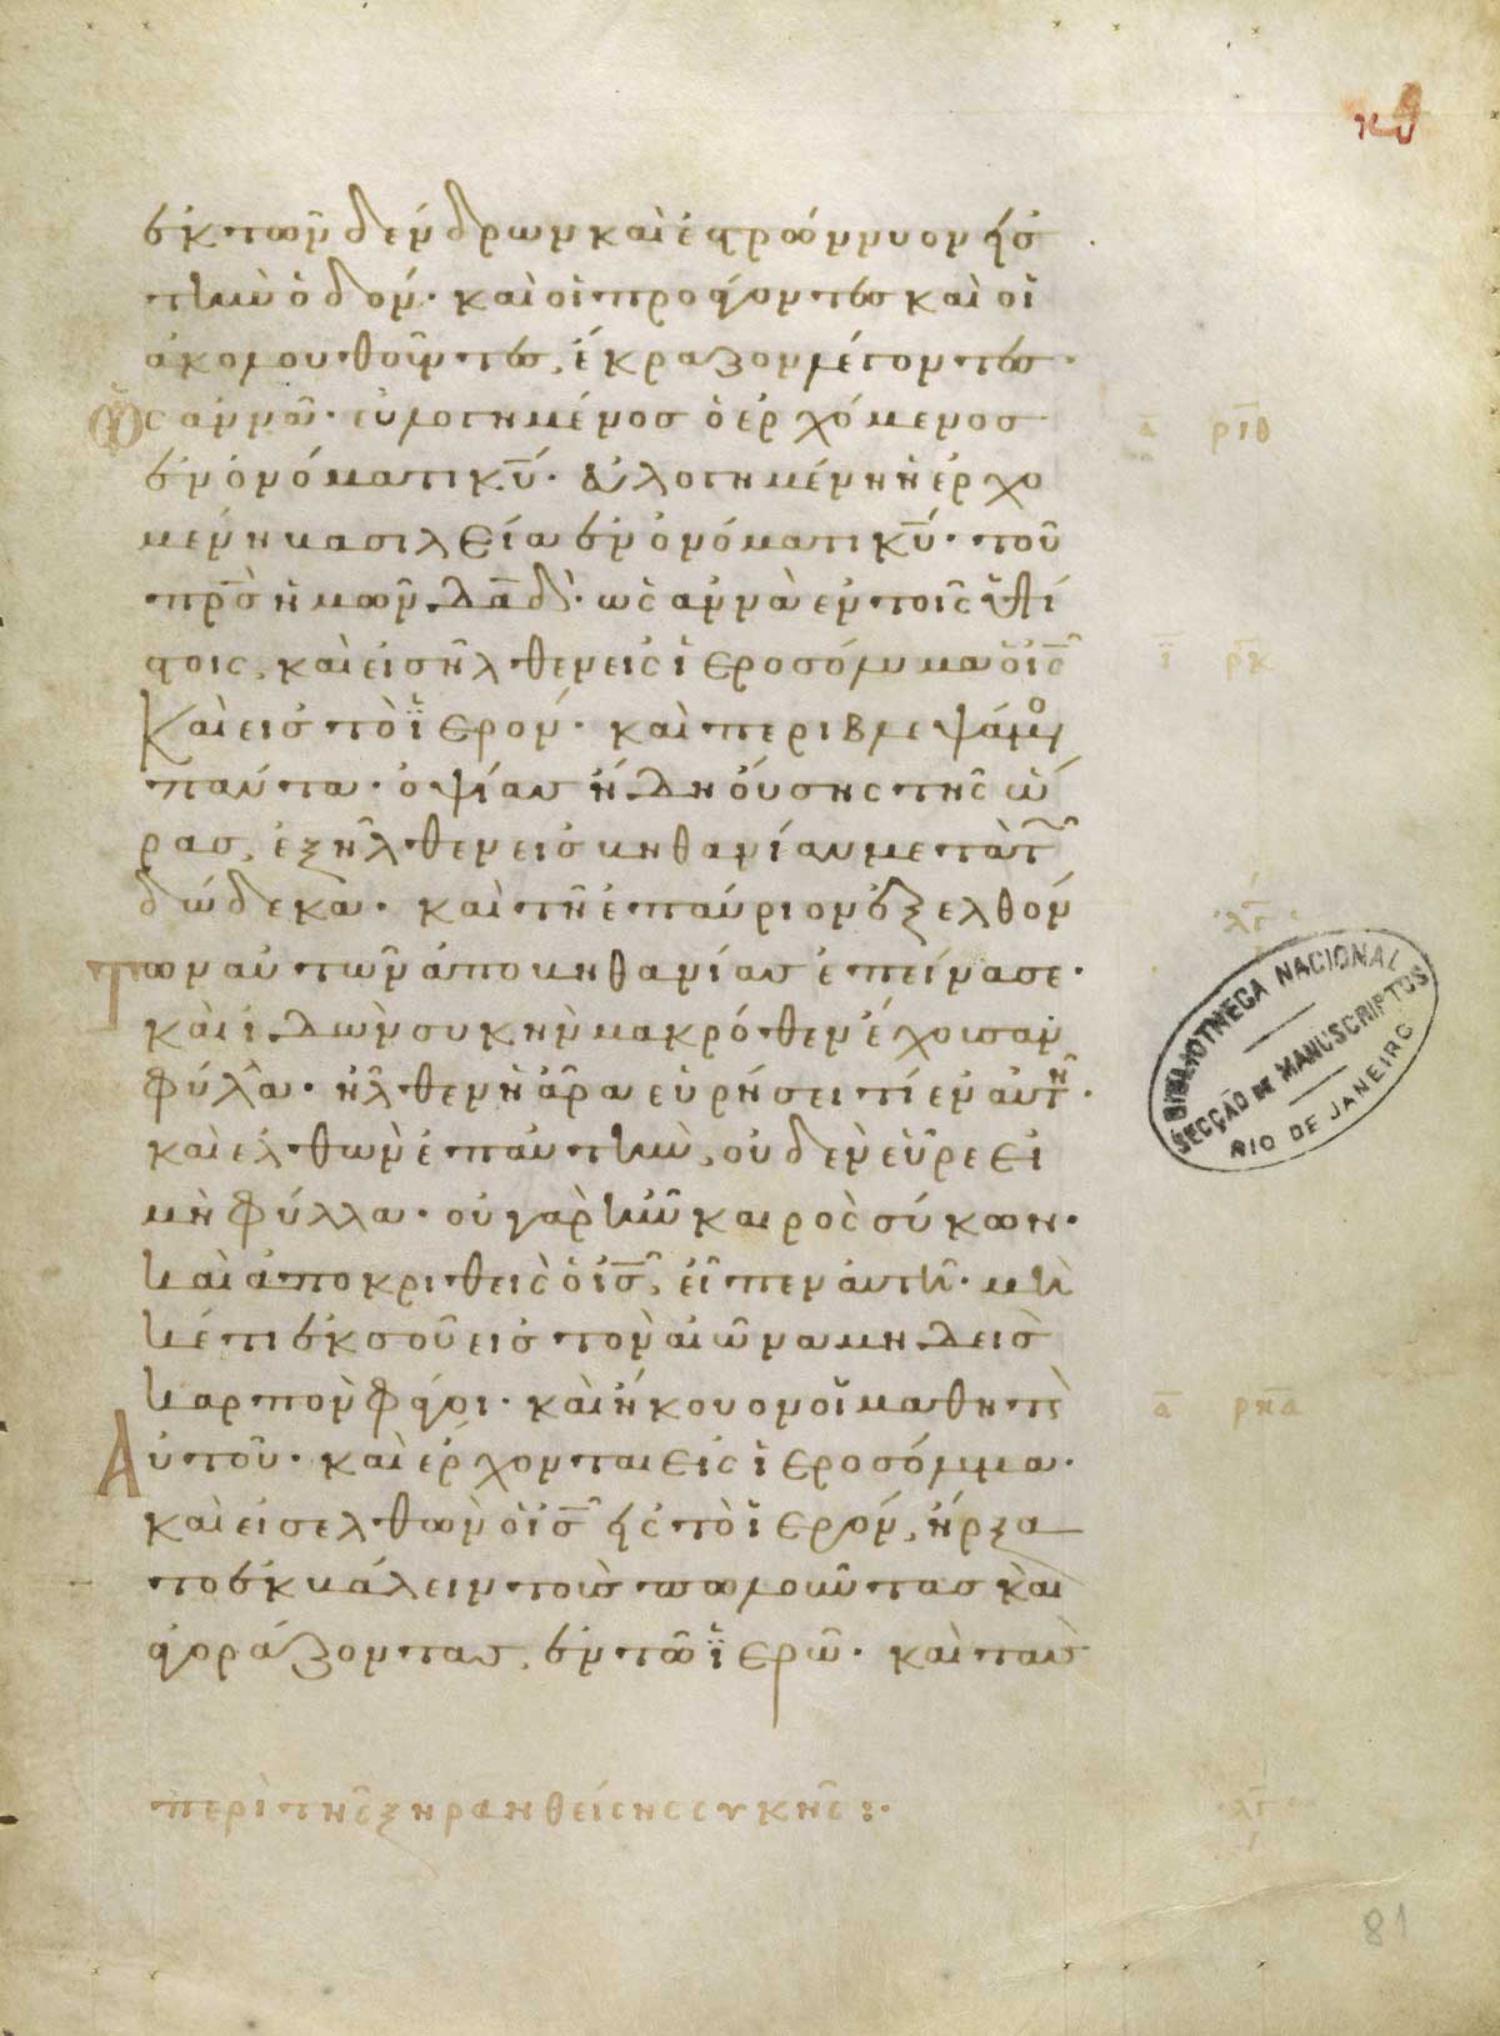 ἐκ τῶν δένδρων καὶ ἐστρώννυον εἰς
τὴν ὁδόν· καὶ οἱ προάγοντες καὶ οἱ
ἀκολουθοῦντες, ἔκραζον λέγοντες·
ὡσαννά· εὐλογημένος ὁ ἐρχόμενος
ἐν ὀνόματι κ̅υ̅· εὐλογημένη ἡ ἐρχο
μένη βασιλεία ἐν ὀνόματι κ̅υ̅· τοῦ
π̅ρ̅ς̅ ἡμῶν δ̅α̅δ̅· ὡσαννὰ ἐν τοῖς ὑψί
στοις, καὶ εἰσῆλθεν εἰς ἱεροσόλυμα ὁ ι̅ς̅
καὶ εἰς τὸ ἱερόν· καὶ περιβλεψάμενος
πάντα· ὀψίας ἤδη οὔσης τῆς ὥ
ρας, ἐξῆλθεν εἰς βηθανίαν μετὰ τῶν
δώδεκα· καὶ τῇ ἐπαύριον ἐξελθόν
των αὐτῶν ἀπὸ βηθανίας ἐπείνασε·
καὶ ἰδὼν συκῆν μακρόθεν ἔχουσαν
φύλλα· ἦλθεν ἢ ἄρα εὑρήσει τί ἐν αὐτῇ·
καὶ ἐλθὼν ἐπ αὐτὴν, οὐδὲν εὗρε εἰ
μὴ φύλλα· οὐ γὰρ ἦν καιρὸς σύκων·
καὶ ἀποκριθεὶς ὁ ι̅ς̅, εἶπεν αὐτῇ· μη
κέτι ἐκ σοῦ εἰς τὸν αἰῶνα μηδεὶς
καρπὸν φάγοι· καὶ ἤκουον οἱ μαθηταὶ
αὐτοῦ· καὶ ἔρχονται εἰς ἱεροσόλυμα·
καὶ εἰσελθὼν ὁ ι̅ς̅ εἰς τὸ ἱερόν, ἤρξα
το ἐκβάλειν τοὺς πωλοῦντας καὶ
ἀγοράζοντας, ἐν τῷ ἱερῷ· καὶ τὰς
περὶ τῆς ξηρανθείσης συκῆς :·
α̅ ρ̅ι̅θ̅
ι̅ ρ̅κ̅
λ̅γ̅
α̅ ρ̅κ̅α̅
λ̅γ̅
BIBLIOTHECA NACIONAL
SECÇÃO DE MANUSCRIPTOS
RIO DE JANEIRO
81